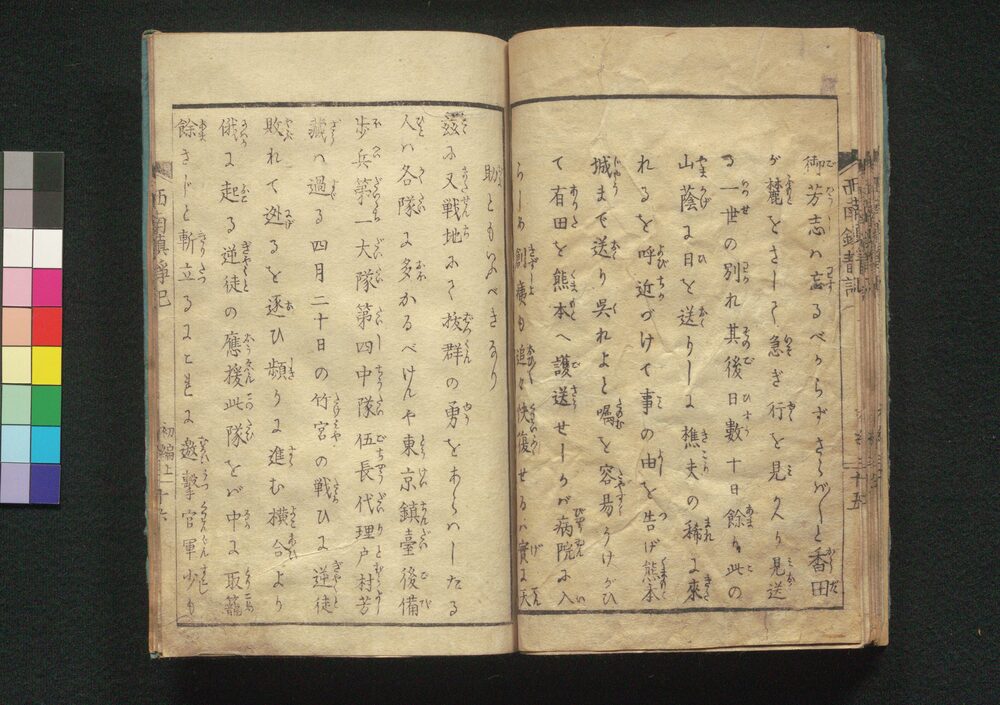 御芳志ハ忘るべからずさらバ〳〵と香田
が麓をさして急ぎ行を見かへり見送
る一世の別れ其後日數十日餘り此の
山蔭に日を送りしに樵夫の稀に來
れるを呼近づけて事の由を告げ熊本
城まで送り呉れよと囑を容易くうけがひ
て有田を熊本へ護送せしが病院に入
らしめ創痍も追々快復せるハ實に天
助ともいふべきなり
茲に又戦地にて抜群の勇をあらハしたる
人ハ各隊に多かるべけんや東京鎮臺後備
歩兵第一大隊第四中隊伍長代理戸村芳
藏ハ過る四月二十日の竹宮の戦ひに逆徒
敗れて迯るを逐ひ頻りに進む横合より
俄に起る逆徒の應援此隊をバ中に取籠
餘さじと斬立るにぞ
遊撃官軍少しも
西南鎮静記
初編上 二十六
二十五